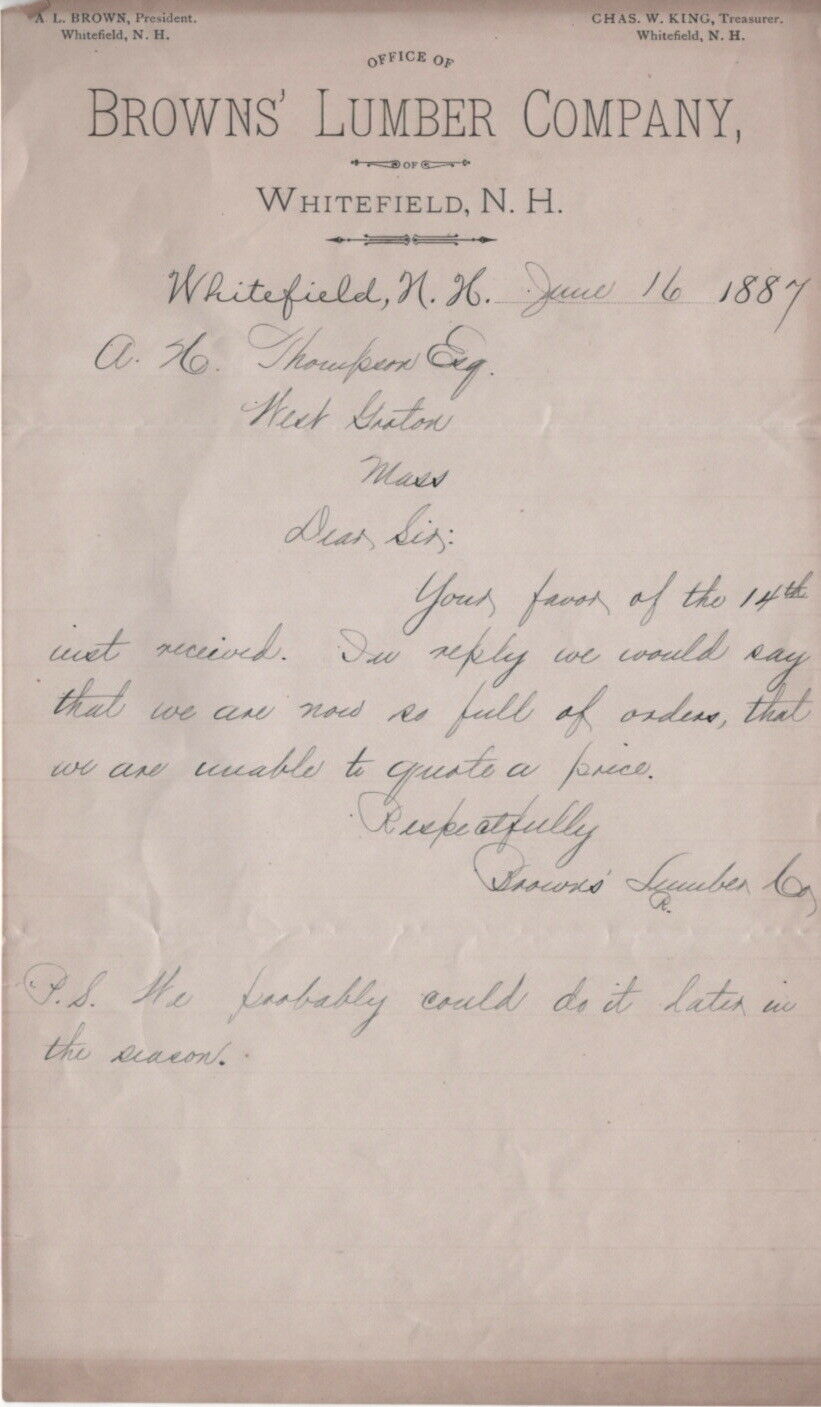 A. L. BROWN, President.
Whitefield, N. H.
CHAS. W. KING, Treasurer.
Whitefield, N. H.
OFFICE OF
BROWNS' LUMBER COMPANY,
OF
WHITEFIELD, N. H.
Whitefield, N. H. June 16 1887
A. H. Thompson Esq.
West Groton
Mass
Dear Sir:
Your favor of the 14th
inst received. In reply we would say
that we are now so full of orders, that
we are unable to quote a price.
Respectfully
Browns' Lumber Co
R.
P.S. We probably could do it later in
the season.